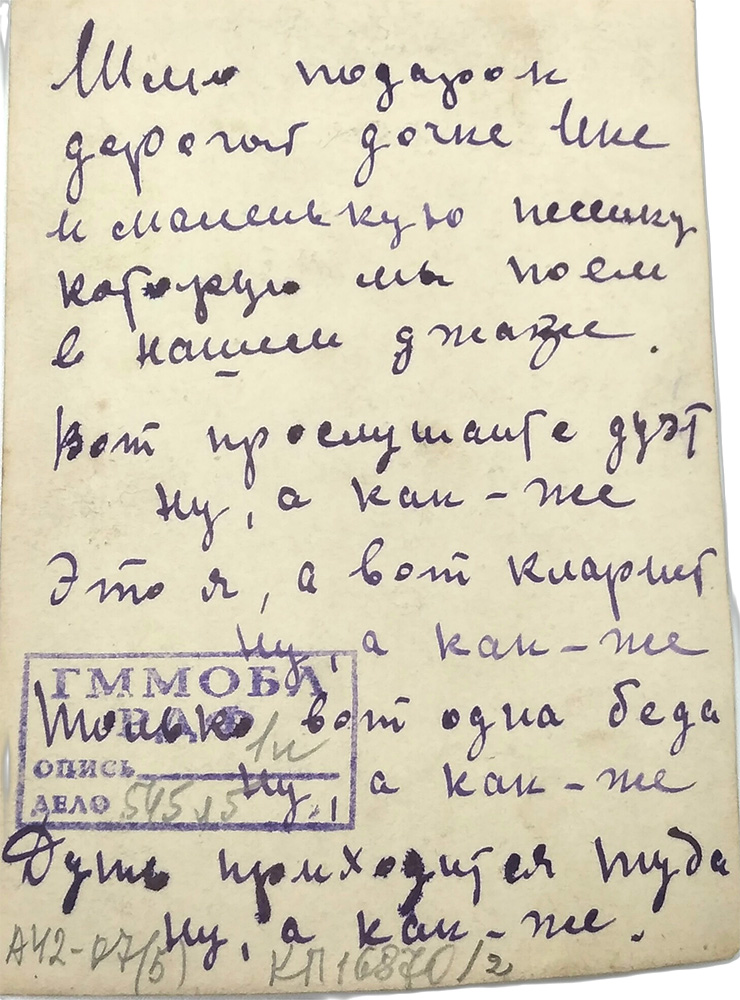 Шлю подарок
дорогой дочке Ике
и маленькую песенку
которую мы поем
в нашем джазе.
Вот прослушайте дуэт
Ну, а как-же
Это я, а вот кларнет
Ну, а как-же
ГММОБЛ
Только вот одна беда
1н
ОПИСЬ
Ну, а как-же
ДЕЛО 545л5
Дуть приходится туда
Ну, а как-же.
А42-07(5) КП16870/2